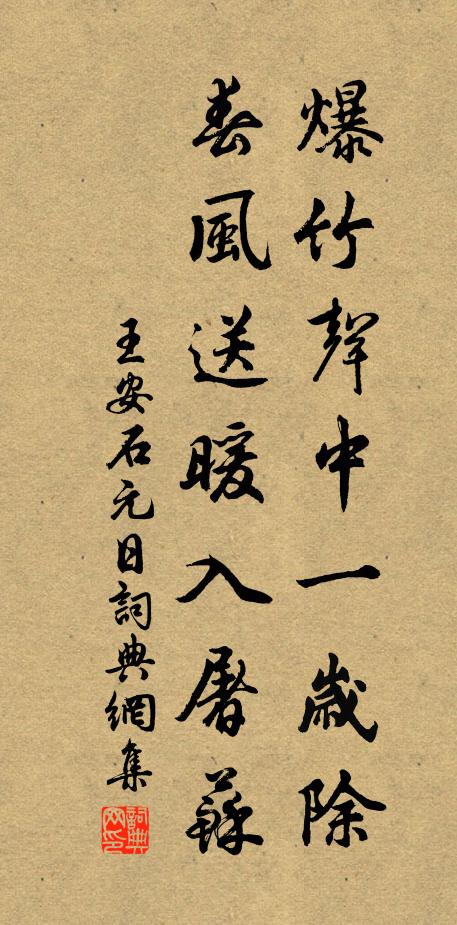 爆竹聲中一歲除
春風送暖入屠蘇
王安石元日詞典網集
詞典网印